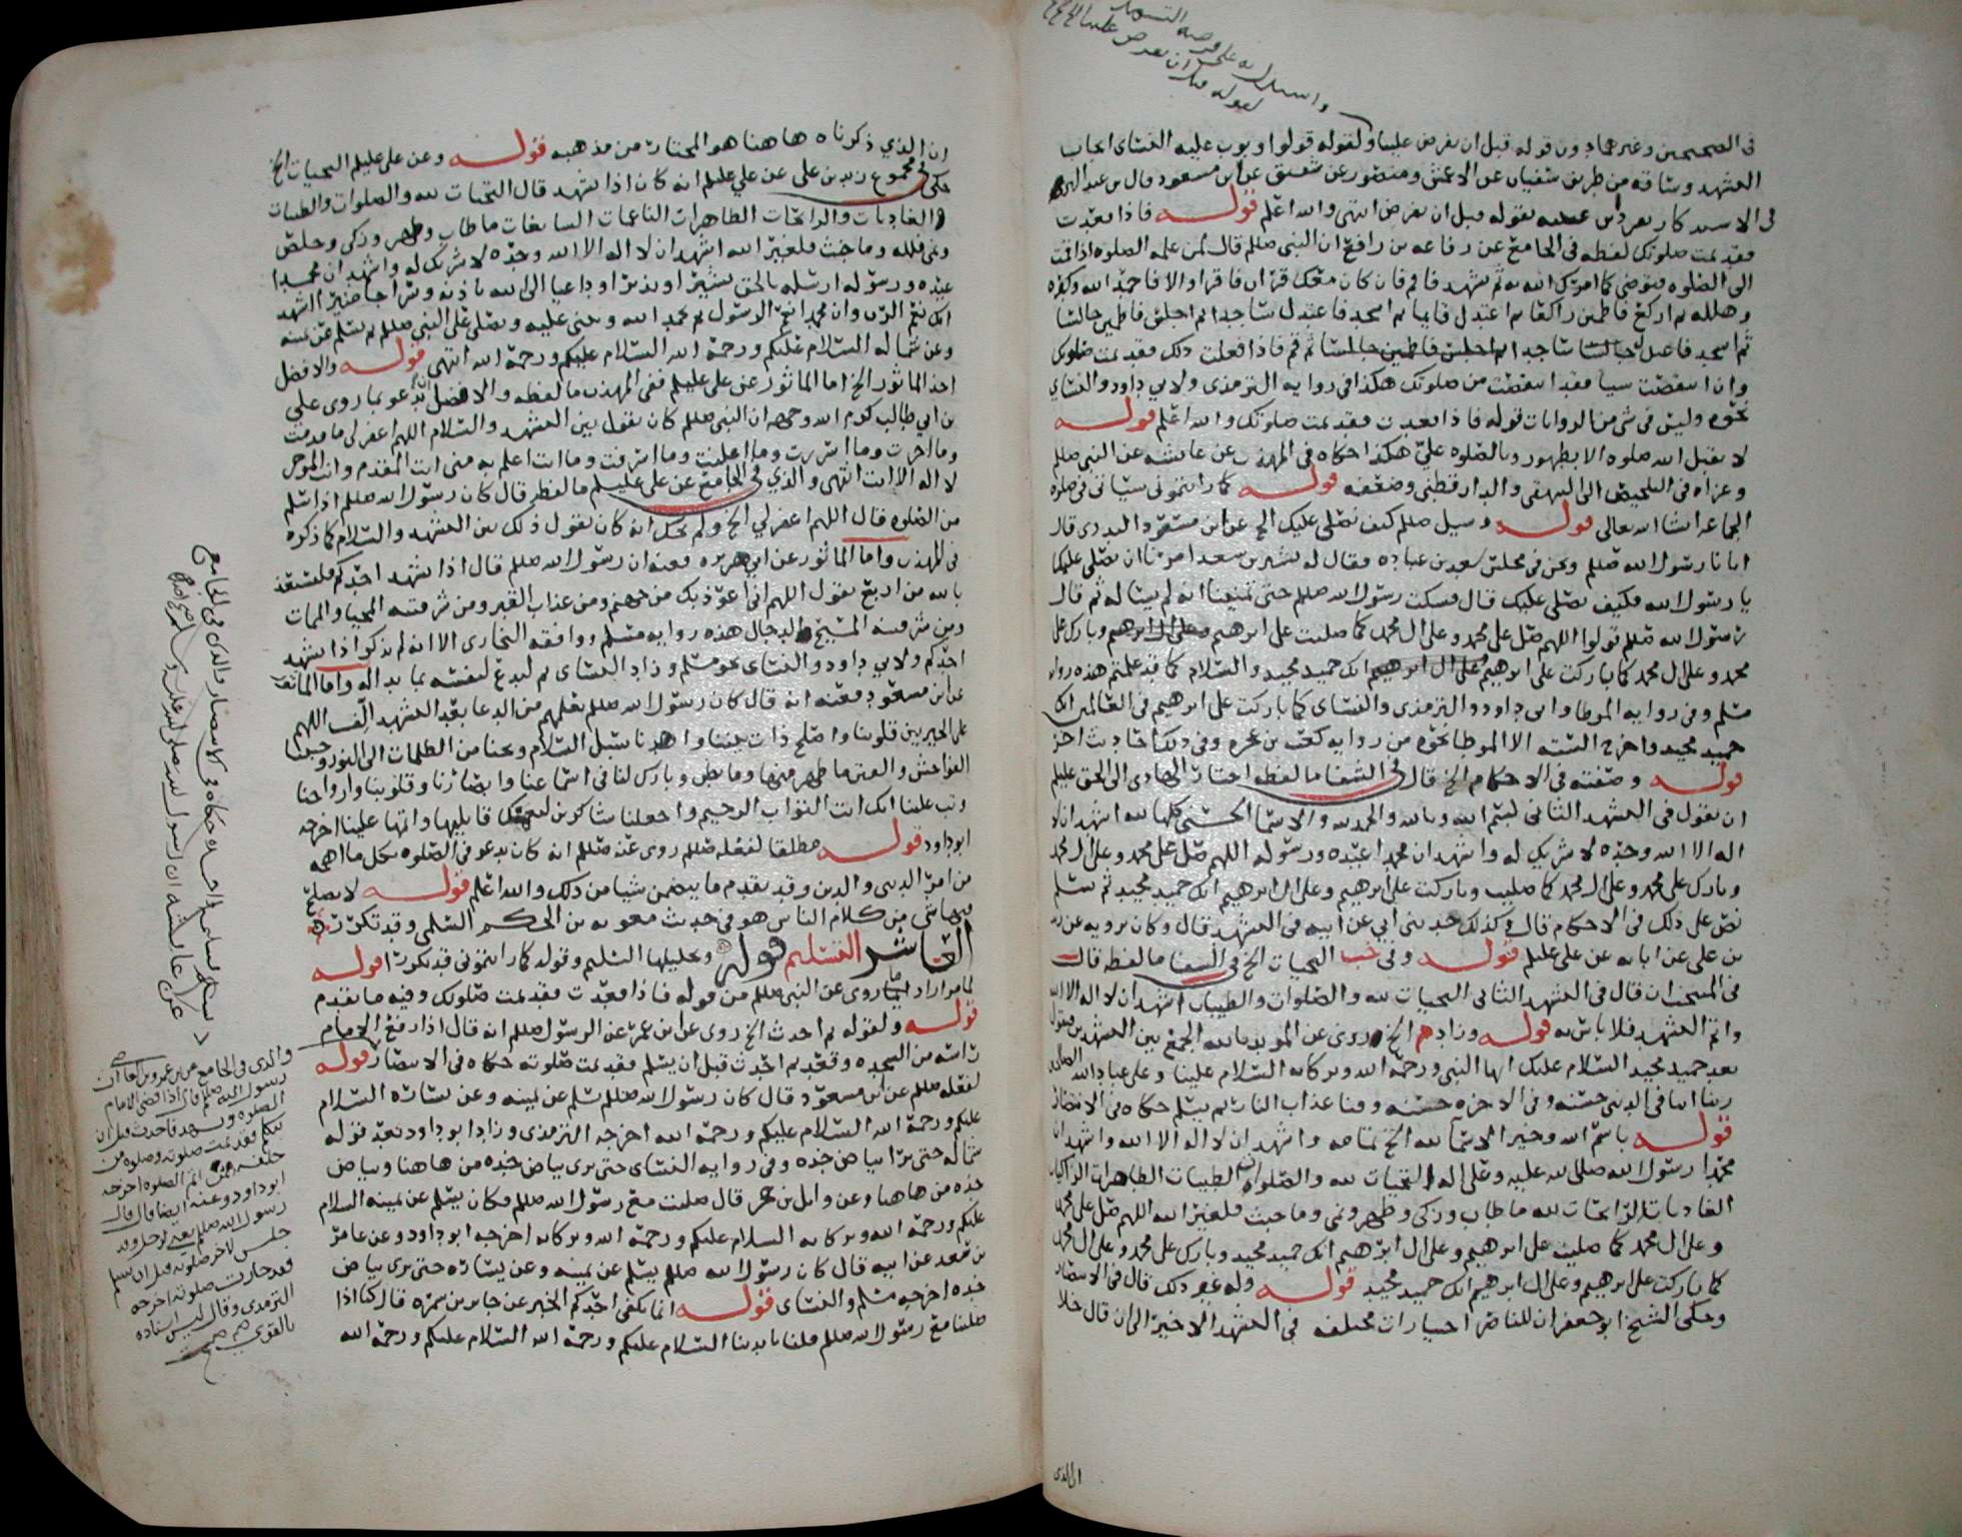 في الصحيحين وغيرهما دون قوله قبل ان يفرض علينا ولقوله قولوا وبوب عليه النسائي ايجاب
التشهد وساقه من طريق سفيان عن الاعمش ومنصور عن شقيق عن ابن مسعود قال بن عبد البر
في الاستذكار تفرد ابن عيينه بقوله قبل ان يفرض انتهى والله اعلم قوله فاذا قعدت
فقد تمت صلوتك لفظه في الجامع عن رفاعه بن رافع ان النبي صللم قال لمن علمه الصلوه اذا قمت
الى الصلوه فتوضى كما امرك الله به ثم تشهد فاقم فان كان معك قران فاقرا والا فاحمد الله وكبره
وهلله ثم اركع فاطمئن راكعا ثم اعتدل قايما ثم اسجد فاعتدل ساجدا ثم اجلس فاطمئن جالسا
ثم اسجد فاعتدل ساجدا ثم اجلس فاطمئن جالسا ثم قم فاذا فعلت ذلك فقد تمت صلوتك
وان انتقصت شيا فقد انتقصت من صلوتك هكذا في روايه الترمذي ولابي داود والنسائي
نحوه وليس في شي من الروايات قوله فاذا قعدت فقد تمت صلوتك والله اعلم قوله
لا يقبل الله صلوه الا بطهور وبالصلوه علي هكذا حكاه في المهذب عن عايشه عن النبي صللم
وعزاه في التلخيص الى البيهقي والدارقطني وضعفه قوله كما رايتموني سياتي في صلوه
الجماعه ان شا الله تعالى قوله وسيل صللم كيف نصلي عليك الخ عن ابن مسعود البدري قال
اتانا رسول الله صللم ونحن في مجلس سعد بن عباده فقال له بشير بن سعد امرنا ان نصلي عليك
يا رسول الله فكيف نصلي عليك قال فسكت رسول الله صللم حتى تمنينا انه لم يساله ثم قال
رسول الله صللم قولوا اللهم صل على محمد وعلى ال محمد كما صليت على ابرهيم وعلى ال ابرهيم وبارك على
محمد وعلى ال محمد كما باركت على ابرهيم وعلى ال ابرهيم انك حميد مجيد والسلام كما قد علمتم هذه روايه
مسلم وفي روايه الموطا وابي داود والترمذي والنسائي كما باركت على ابرهيم في العالمين انك
حميد مجيد واخرج السته الا الموطا نحوه من روايه كعب بن عجره وفي ذلك احاديث اخر
قوله وصفته في الاحكام الخ قال في الشفا ما لفظه اختار الهادي الى الحق عليلم
ان يقول في التشهد الثاني بسم الله وبالله والحمد لله والاسما الحسنى كلها لله اشهد ان لا
اله الا الله وحده لا شريك له واشهد ان محمدا عبده ورسوله اللهم صل على محمد وعلى ال محمد
وبارك على محمد وعلى ال محمد كما صليت وباركت على ابرهيم وعلى ال ابرهيم انك حميد مجيد ثم يسلم
نص على ذلك في الاحكام قال وكذلك حدثني ابي عن ابيه في التشهد قال وكان يرويه عن زيد
بن علي عن ابايه عن علي عليلم قوله وفي خب التحيات الخ في الشفا ما لفظه قال
في المنتخب ان قال في التشهد الثاني التحيات لله والصلوات والطيبات اشهد ان لا اله الا الله
واتم التشهد فلا باس به قوله وزاد م الخ وروي عن المويد بالله الجمع بين التشهدين فيقول
بعد حميد مجيد السلام عليك ايها النبي ورحمة الله وبركاته السلام علينا وعلى عباد الله الصالحين
ربنا اتنا في الدنيا حسنه وفي الاخره حسنه وقنا عذاب النار ثم يسلم حكاه في الانتصار
قوله باسم الله وخير الاسما لله الخ تمامه واشهد ان لا اله الا الله واشهد ان
محمدا رسول الله صلى الله عليه وعلى اله التحيات لله والصلوات الطيبات الطاهرات الزاكيات
الغاديات الرايحات لله ما طاب وزكى وطهر ونمى وما خبث فلغير الله اللهم صل على محمد
وعلى ال محمد كما صليت على ابرهيم وعلى ال ابرهيم انك حميد مجيد وبارك على محمد وعلى ال محمد
كما باركت على ابرهيم وعلى ال ابرهيم انك حميد مجيد قوله وله غير ذلك قال في الانتصار
وحكى الشيخ ابو جعفر ان للناصر اختيارات مختلفه في التشهد الاخير الى ان قال خلا
ان الذي
ان الذي ذكرناه هاهنا هو المختار من مذهبه قوله وعن علي عليلم التحيات الخ
حكى في مجموع زيد بن علي عن علي عليلم انه كان اذا تشهد قال التحيات لله والصلوات والطيبات
والغاديات والرايحات الطاهرات الناعمات السابغات ما طاب وطهر وزكى وخلص
ونمى فلله وما خبث فلغير الله اشهد ان لا اله الا الله وحده لا شريك له واشهد ان محمدا
عبده ورسوله ارسله بالحق بشيرا ونذيرا وداعيا الى الله باذنه وسراجا منيرا اشهد
انك نعم الرب وان محمدا نعم الرسول ثم يحمد الله ويثني عليه ويصلي على النبي صللم ثم يسلم عن يمينه
وعن شماله السلام عليكم ورحمة الله السلام عليكم ورحمة الله انتهى قوله والافضل
احد الماثور الخ اما الماثور عن علي عليلم ففي المهذب ما لفظه والافضل ان يدعو بما روى علي
بن ابي طالب كرم الله وجهه ان النبي صللم كان يقول بين التشهد والسلام اللهم اغفر لي ما قدمت
وما اخرت وما اسررت وما اعلنت وما اسرفت وما انت اعلم به مني انت المقدم وانت الموخر
لا اله الا انت انتهى والذي في الجامع عن علي عليلم ما لفظه قال كان رسول الله صللم اذا سلم
من الصلوه قال اللهم اغفر لي الخ ولم يحك انه كان يقول ذلك بين التشهد والسلام كما ذكره
في المهذب واما الماثور عن ابي هريره فعنه ان رسول الله صللم قال اذا تشهد احدكم فليستعذ
بالله من اربع يقول اللهم اني اعوذ بك من جهنم ومن عذاب القبر ومن شر فتنه المحيا والممات
ومن شر فتنه المسيح الدجال هذه روايه مسلم ووافقه البخاري الا انه لم يذكر اذا تشهد
احدكم ولابي داود والنسائي نحو مسلم وزاد النسائي ثم ليدع لنفسه بما بدا له واما الماثور
عن ابن مسعود فعنه انه قال كان رسول الله صللم يعلمهم من الدعا بعد التشهد الف اللهم
على الخير بين قلوبنا واصلح ذات بيننا واهدنا سبل السلام ونجنا من الظلمات الى النور وجنبنا
الفواحش والفتن ما ظهر منها وما بطن وبارك لنا في اسماعنا وابصارنا وقلوبنا وازواجنا
وتب علينا انك انت التواب الرحيم واجعلنا شاكرين لنعمتك قابليها واتمها علينا اخرجه
ابو داود قوله مطلقا لفعله صللم روي عنه صللم انه كان يدعو في الصلوه بكل ما اهمه
من امر الدنيا والدين وقد تقدم ما يتضمن شيا من ذلك والله اعلم قوله لا يصلح
فيها شي من كلام الناس هو في حديث معويه بن الحكم السلمي وقد تكرر
العاشر التسليم قوله وتحليلها التسليم وقوله كما رايتموني قد تكررا قوله
لما مر اراد ما روي عن النبي صللم من قوله فاذا قعدت فقد تمت صلوتك وفيه ما تقدم
قوله ولقوله ثم احدث الخ روي عن ابن عمر عن الرسول صللم انه قال اذا رفع الامام
راسه من السجده وقعد ثم احدث قبل ان يسلم فقد تمت صلوته حكاه في الانتصار قوله
لفعله صللم عن ابن مسعود قال كان رسول الله صللم يسلم عن يمينه وعن يساره السلام
عليكم ورحمة الله السلام عليكم ورحمة الله اخرجه الترمذي وزاد ابو داود بعد قوله
شماله حتى يرا بياض خده وفي روايه النسائي حتى يرى بياض خده من هاهنا وبياض
خده من هاهنا وعن وايل بن حجر قال صليت مع رسول الله صللم فكان يسلم عن يمينه السلام
عليكم ورحمة الله وبركاته السلام عليكم ورحمة الله وبركاته اخرجه ابو داود وعن عامر
بن سعد عن ابيه قال كان رسول الله صللم يسلم عن يمينه وعن يساره حتى يرى بياض
خده اخرجه مسلم والنسائي قوله انما يكفي احدكم الخبر عن جابر بن سمره قال كنا اذا
صلينا مع رسول الله صللم قلنا بايدينا السلام عليكم ورحمة الله السلام عليكم ورحمة الله
والذي في الجامع عن بن عمرو بن العاص ان
رسول الله صللم قال اذا قضى الامام
الصلوه وتشهد فاحدث قبل ان
يتكلم فقد تمت صلوته وصلوه من
خلفه ممن اتم الصلوه اخرجه
ابو داود وعنه ايضا قال قال
رسول الله صللم يعني الرجل وقد
جلس لاخر صلوته قبل ان يسلم
فقد جازت صلوته اخرجه
الترمذي وقال ليس اسناده
بالقوي